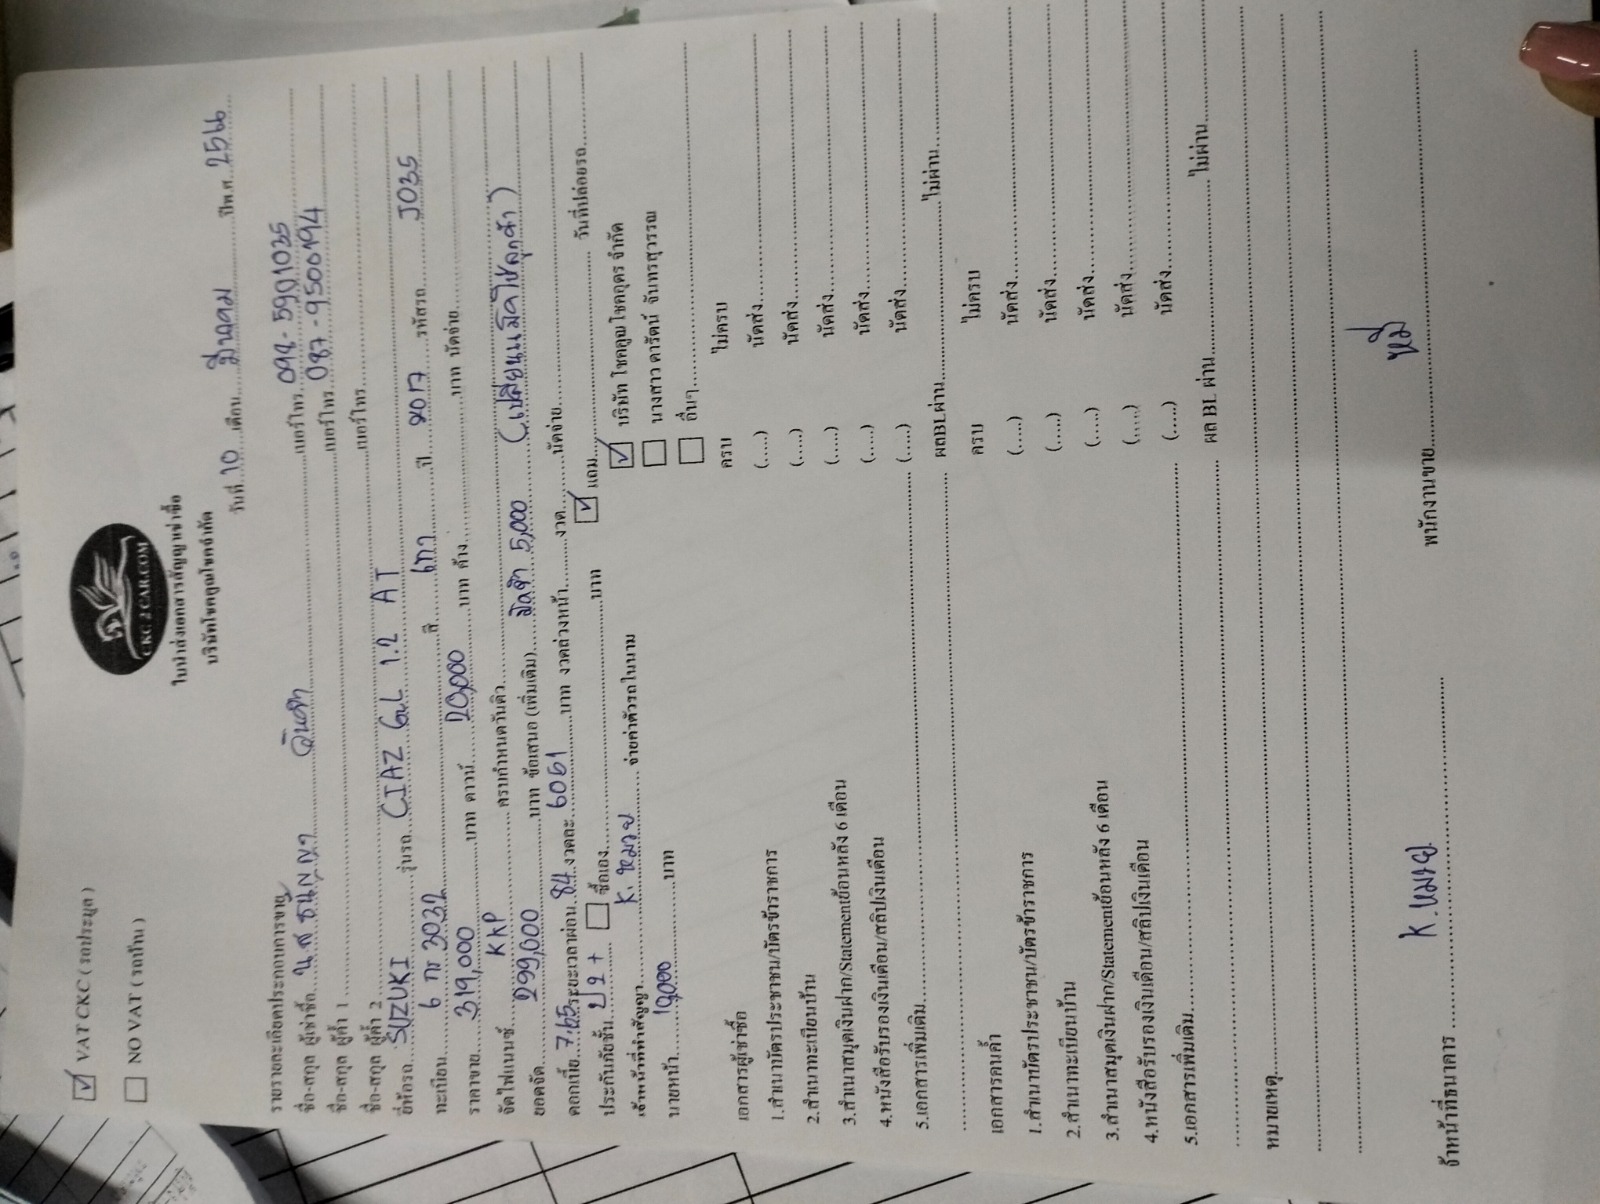 ☑ VAT CKC ( รถประมูล )
☐ NO VAT ( รถบ้าน )
CKC 2 CAR.COM
ใบนำส่งเอกสารสัญญาเช่าซื้อ
บริษัทโชคคูณโชคจำกัด
วันที่ 10 เดือน มีนาคม ปีพ.ศ. 2566
รายรายละเอียดประกอบการขาย
ชื่อ-สกุล ผู้เช่าซื้อ น.ส เบอร์โทร 098-5901035
ชื่อ-สกุล ผู้ค้ำ 1 เบอร์โทร 087-9500194
ชื่อ-สกุล ผู้ค้ำ 2 เบอร์โทร
ยี่ห้อรถ SUZUKI รุ่นรถ CIAZ GL 1.2 AT
ทะเบียน 6 กร 3032 สี เทา ปี 2017 รหัสรถ J035
ราคาขาย 319,000 บาท ดาวน์ 20,000 บาท ค้าง บาท นัดจ่าย
จัดไฟแนนซ์ KKP ครบกำหนดวันคิว
ยอดจัด 299,000 บาท ข้อเสนอ (เพิ่มเติม) มัดจำ 5,000 (เปลี่ยนมัดใช้ลูกค้า)
ดอกเบี้ย 7.65 ระยะเวลาผ่อน 84 งวดละ 6061 บาท งวดล่วงหน้า งวด นัดจ่าย
ประกันภัยชั้น ป2+ ☐ ซื้อเอง บาท ☑ แถม วันที่ปล่อยรถ
เจ้าหน้าที่ทำสัญญา K. หมวย จ่ายค่าตัวรถในนาม ☑ บริษัท โชคคูณ โชคกุดร จำกัด
☐ นางสาว ดารัตน์ จันทรสุวรรณ
นายหน้า 10,000 บาท ☐ อื่นๆ
เอกสารผู้เช่าซื้อ ครบ ไม่ครบ
1.สำเนาบัตรประชาชน/บัตรข้าราชการ (.....) นัดส่ง
2.สำเนาทะเบียนบ้าน (.....) นัดส่ง
3.สำเนาสมุดเงินฝาก/Statementย้อนหลัง 6 เดือน (.....) นัดส่ง
4.หนังสือรับรองเงินเดือน/สลิปเงินเดือน (.....) นัดส่ง
5.เอกสารเพิ่มเติม (.....) นัดส่ง
ผลBLผ่าน ไม่ผ่าน
เอกสารคนค้ำ ครบ ไม่ครบ
1.สำเนาบัตรประชาชน/บัตรข้าราชการ (.....) นัดส่ง
2.สำเนาทะเบียนบ้าน (.....) นัดส่ง
3.สำเนาสมุดเงินฝาก/Statementย้อนหลัง 6 เดือน (.....) นัดส่ง
4.หนังสือรับรองเงินเดือน/สลิปเงินเดือน (.....) นัดส่ง
5.เอกสารเพิ่มเติม (.....) นัดส่ง
ผล BL ผ่าน ไม่ผ่าน
หมายเหตุ
จ้าหน้าที่ธนาคาร K.หมวย พนักงานขาย หมี่